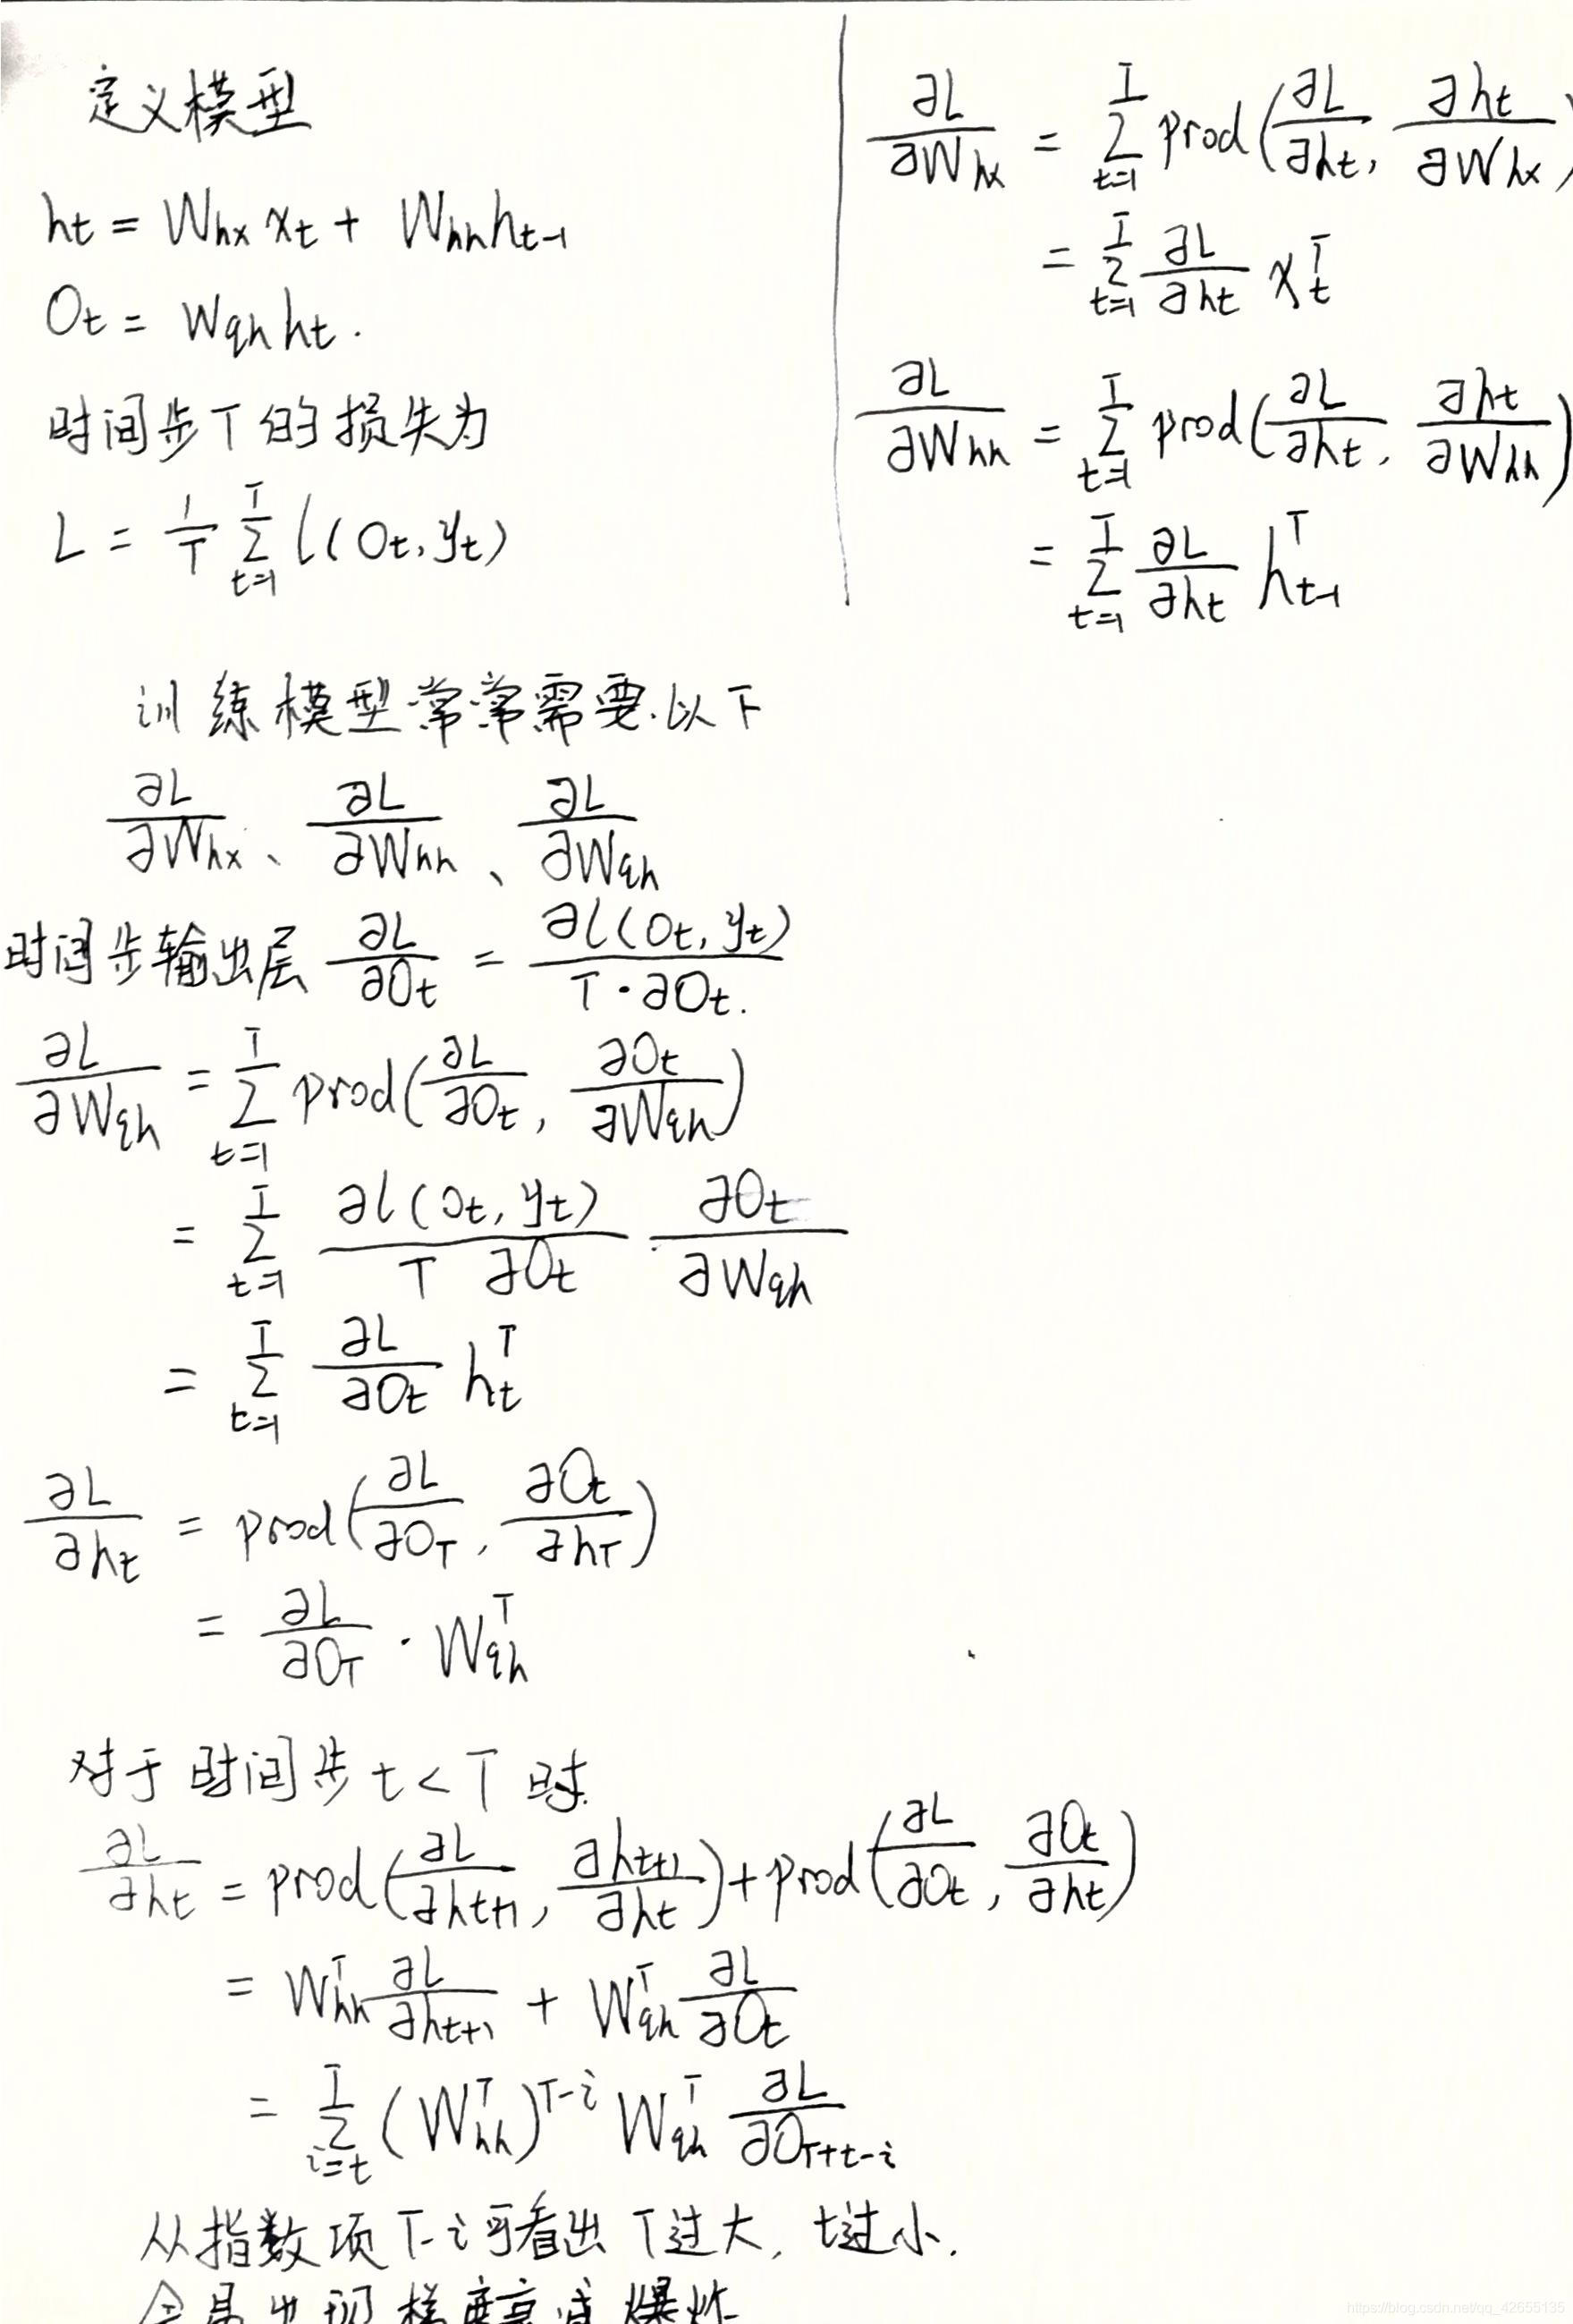 定义模型
ht = Whx xt + Whh ht-1
Ot = Wqh ht.
时间步T的损失为
L = 1/T Σ_{t=1}^{T} l(Ot, yt)
∂L/∂Whx = Σ_{t=1}^{T} prod(∂L/∂ht, ∂ht/∂Whx)
= Σ_{t=1}^{T} ∂L/∂ht xt^T
∂L/∂Whh = Σ_{t=1}^{T} prod(∂L/∂ht, ∂ht/∂Whh)
= Σ_{t=1}^{T} ∂L/∂ht ht-1^T
训练模型常常需要以下
∂L/∂Whx、∂L/∂Whh、∂L/∂Wqh
时间步输出层 ∂L/∂Ot = ∂l(Ot, yt)/T·∂Ot.
∂L/∂Wqh = Σ_{t=1}^{T} prod(∂L/∂Ot, ∂Ot/∂Wqh)
= Σ_{t=1}^{T} ∂l(Ot, yt)/T ∂Ot ∂Ot/∂Wqh
= Σ_{t=1}^{T} ∂L/∂Ot ht^T
∂L/∂ht = prod(∂L/∂OT, ∂Ot/∂hT)
= ∂L/∂OT · Wqh^T
对于时间步 t < T 时.
∂L/∂ht = prod(∂L/∂ht+1, ∂ht+1/∂ht) + prod(∂L/∂Ot, ∂Ot/∂ht)
= Whh^T ∂L/∂ht+1 + Wqh^T ∂L/∂Ot
= Σ_{i=t}^{T} (Whh^T)^{T-i} Wqh^T ∂L/∂OT+t-i
从指数项T-i可看出T过大, t过小.
会易出现梯度衰减爆炸
https://blog.csdn.net/qq_42655135